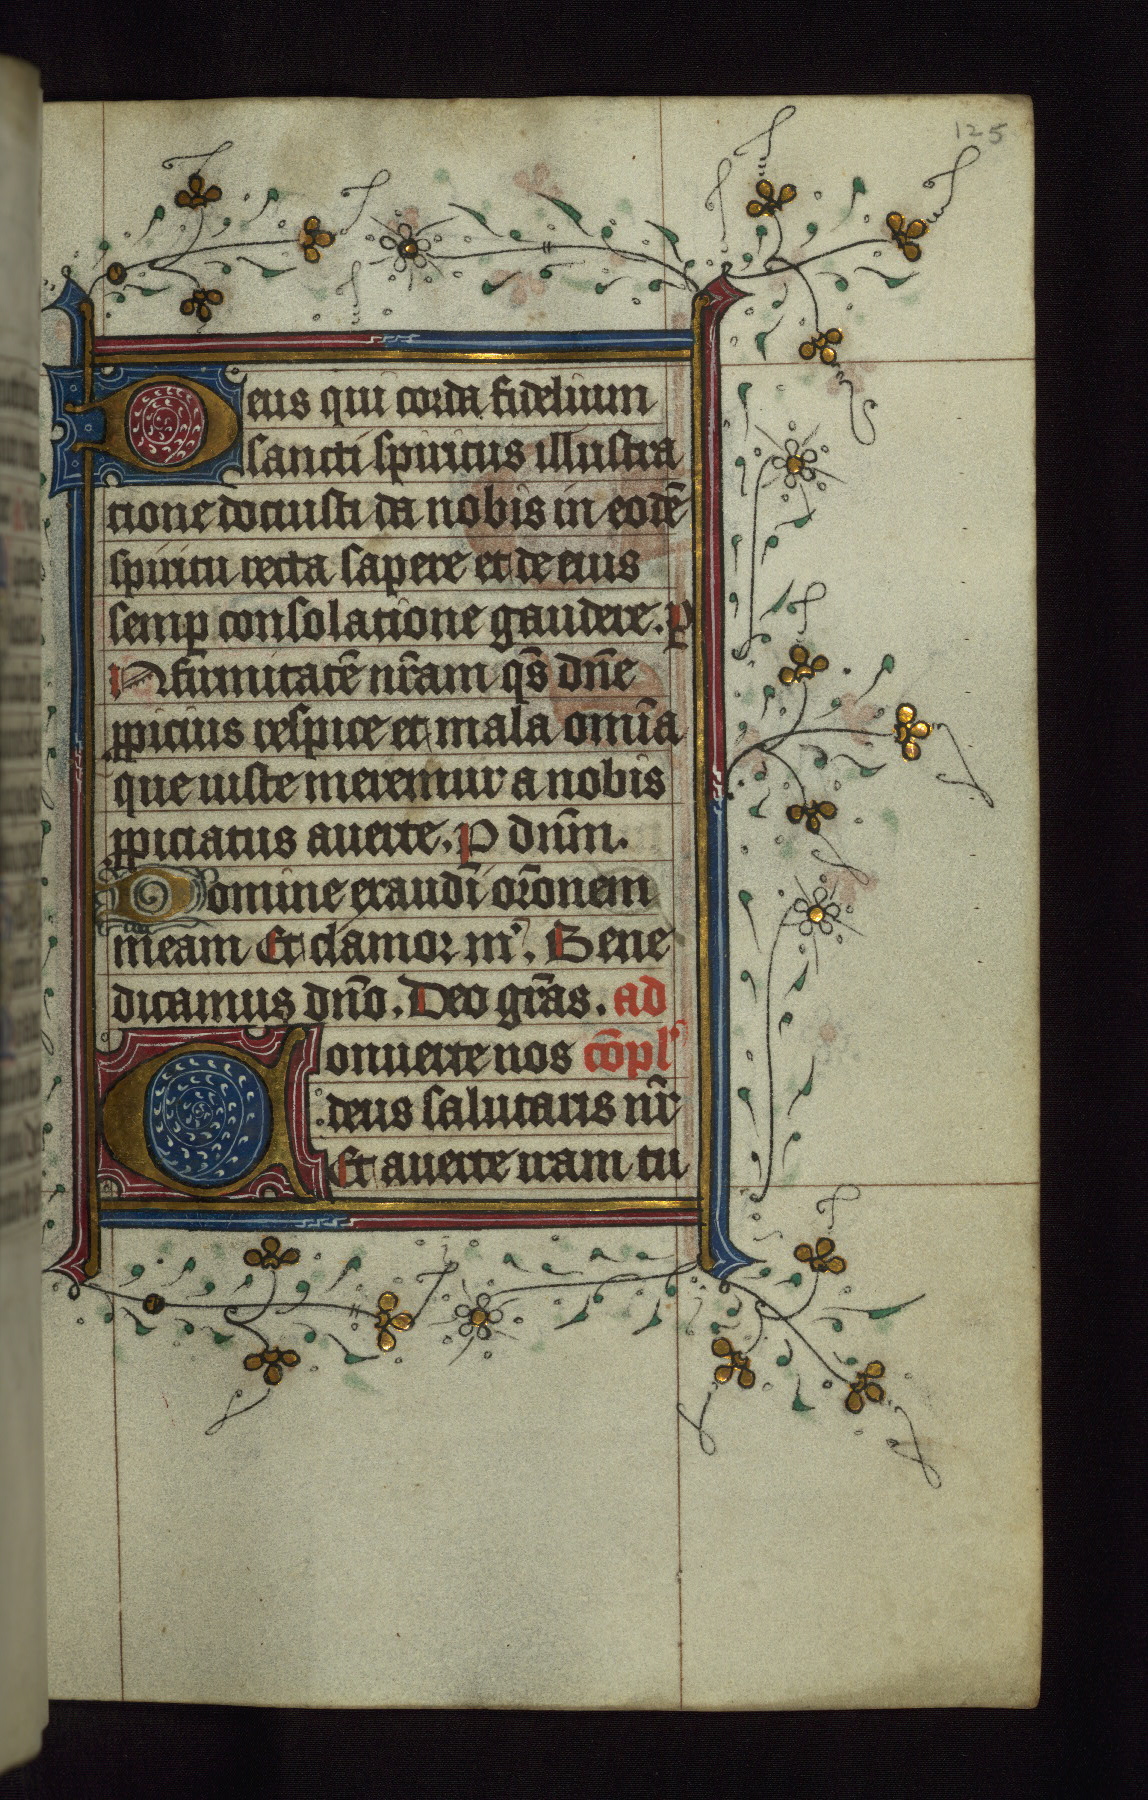 125
Deus qui corda fidelium
sancti spiritus illustra
tione docuisti da nobis in eodē
spiritu recta sapere et de eius
semꝑ consolatione gaudere. ꝑ
Infirmitatē nr̄am qs̄ dn̄e
ꝓpicius respice et mala om̄ia
que iuste meremur a nobis
ꝓpiciatus auerte. P dn̄m.
Domine exaudi or̄onem
meam Et clamor m'. Bene
dicamus dn̄o. Deo gr̄as. ad
Conuerte nos cōpl'
deus salutaris nr̄
Et auerte iram tu